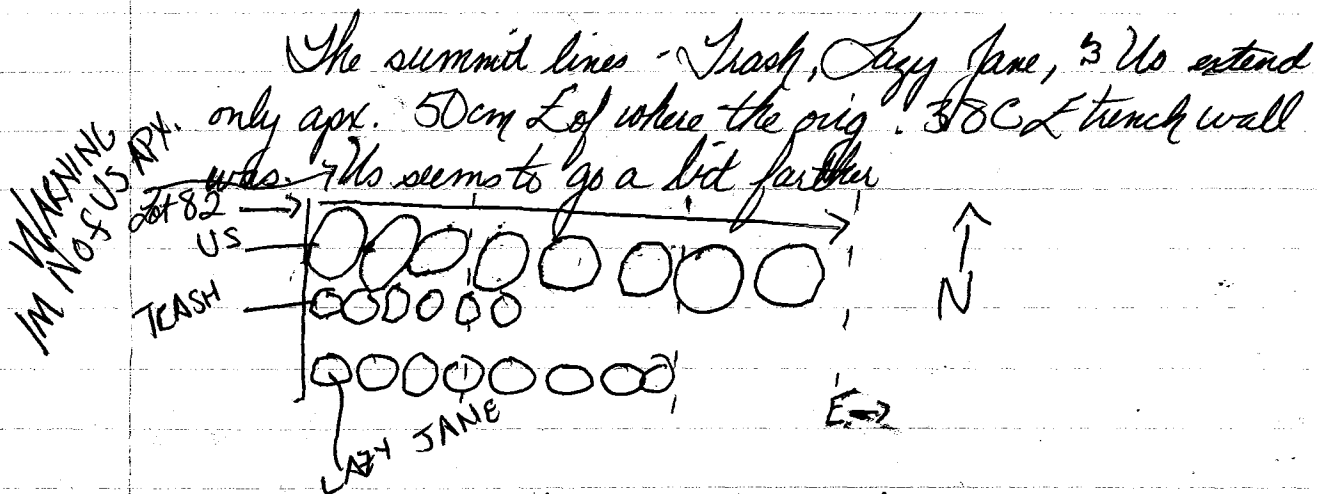 The summit lines - Trash, Lazy Jane, & Us extend
only apx. 50cm E of where the orig. 38C E trench wall
was. Us seems to go a bit farther
WARNING
IM N of US APX.
Lot 82
US
TRASH
N
E
LAZY JANE